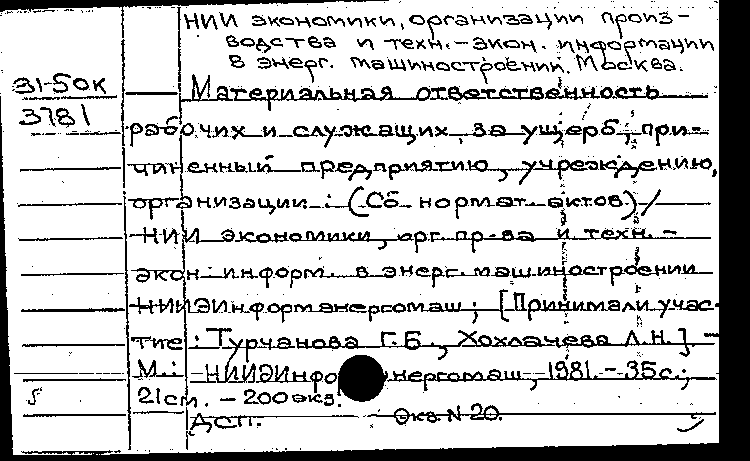 НИИ экономики, организации произ-
водства и техн.-экон. информации
в энерг. машиностроении. Москва.
31-50к
3781
Материальная ответственность
рабочих и служащих за ущерб, при-
чиненный предприятию, учреждению,
организации : (Сб. нормат. актов) /
НИИ экономики, орг. пр-ва и техн.-
экон. информ. в энерг. машиностроении
НИИЭИнформэнергомаш ; [Принимали учас-
тие : Турчанова Г.Б., Хохлачева Л.Н.]. -
М. : НИИЭИнфо нергомаш, 1981. - 35с. ;
21см. - 200экз.
ДСП. Экз. N 20.